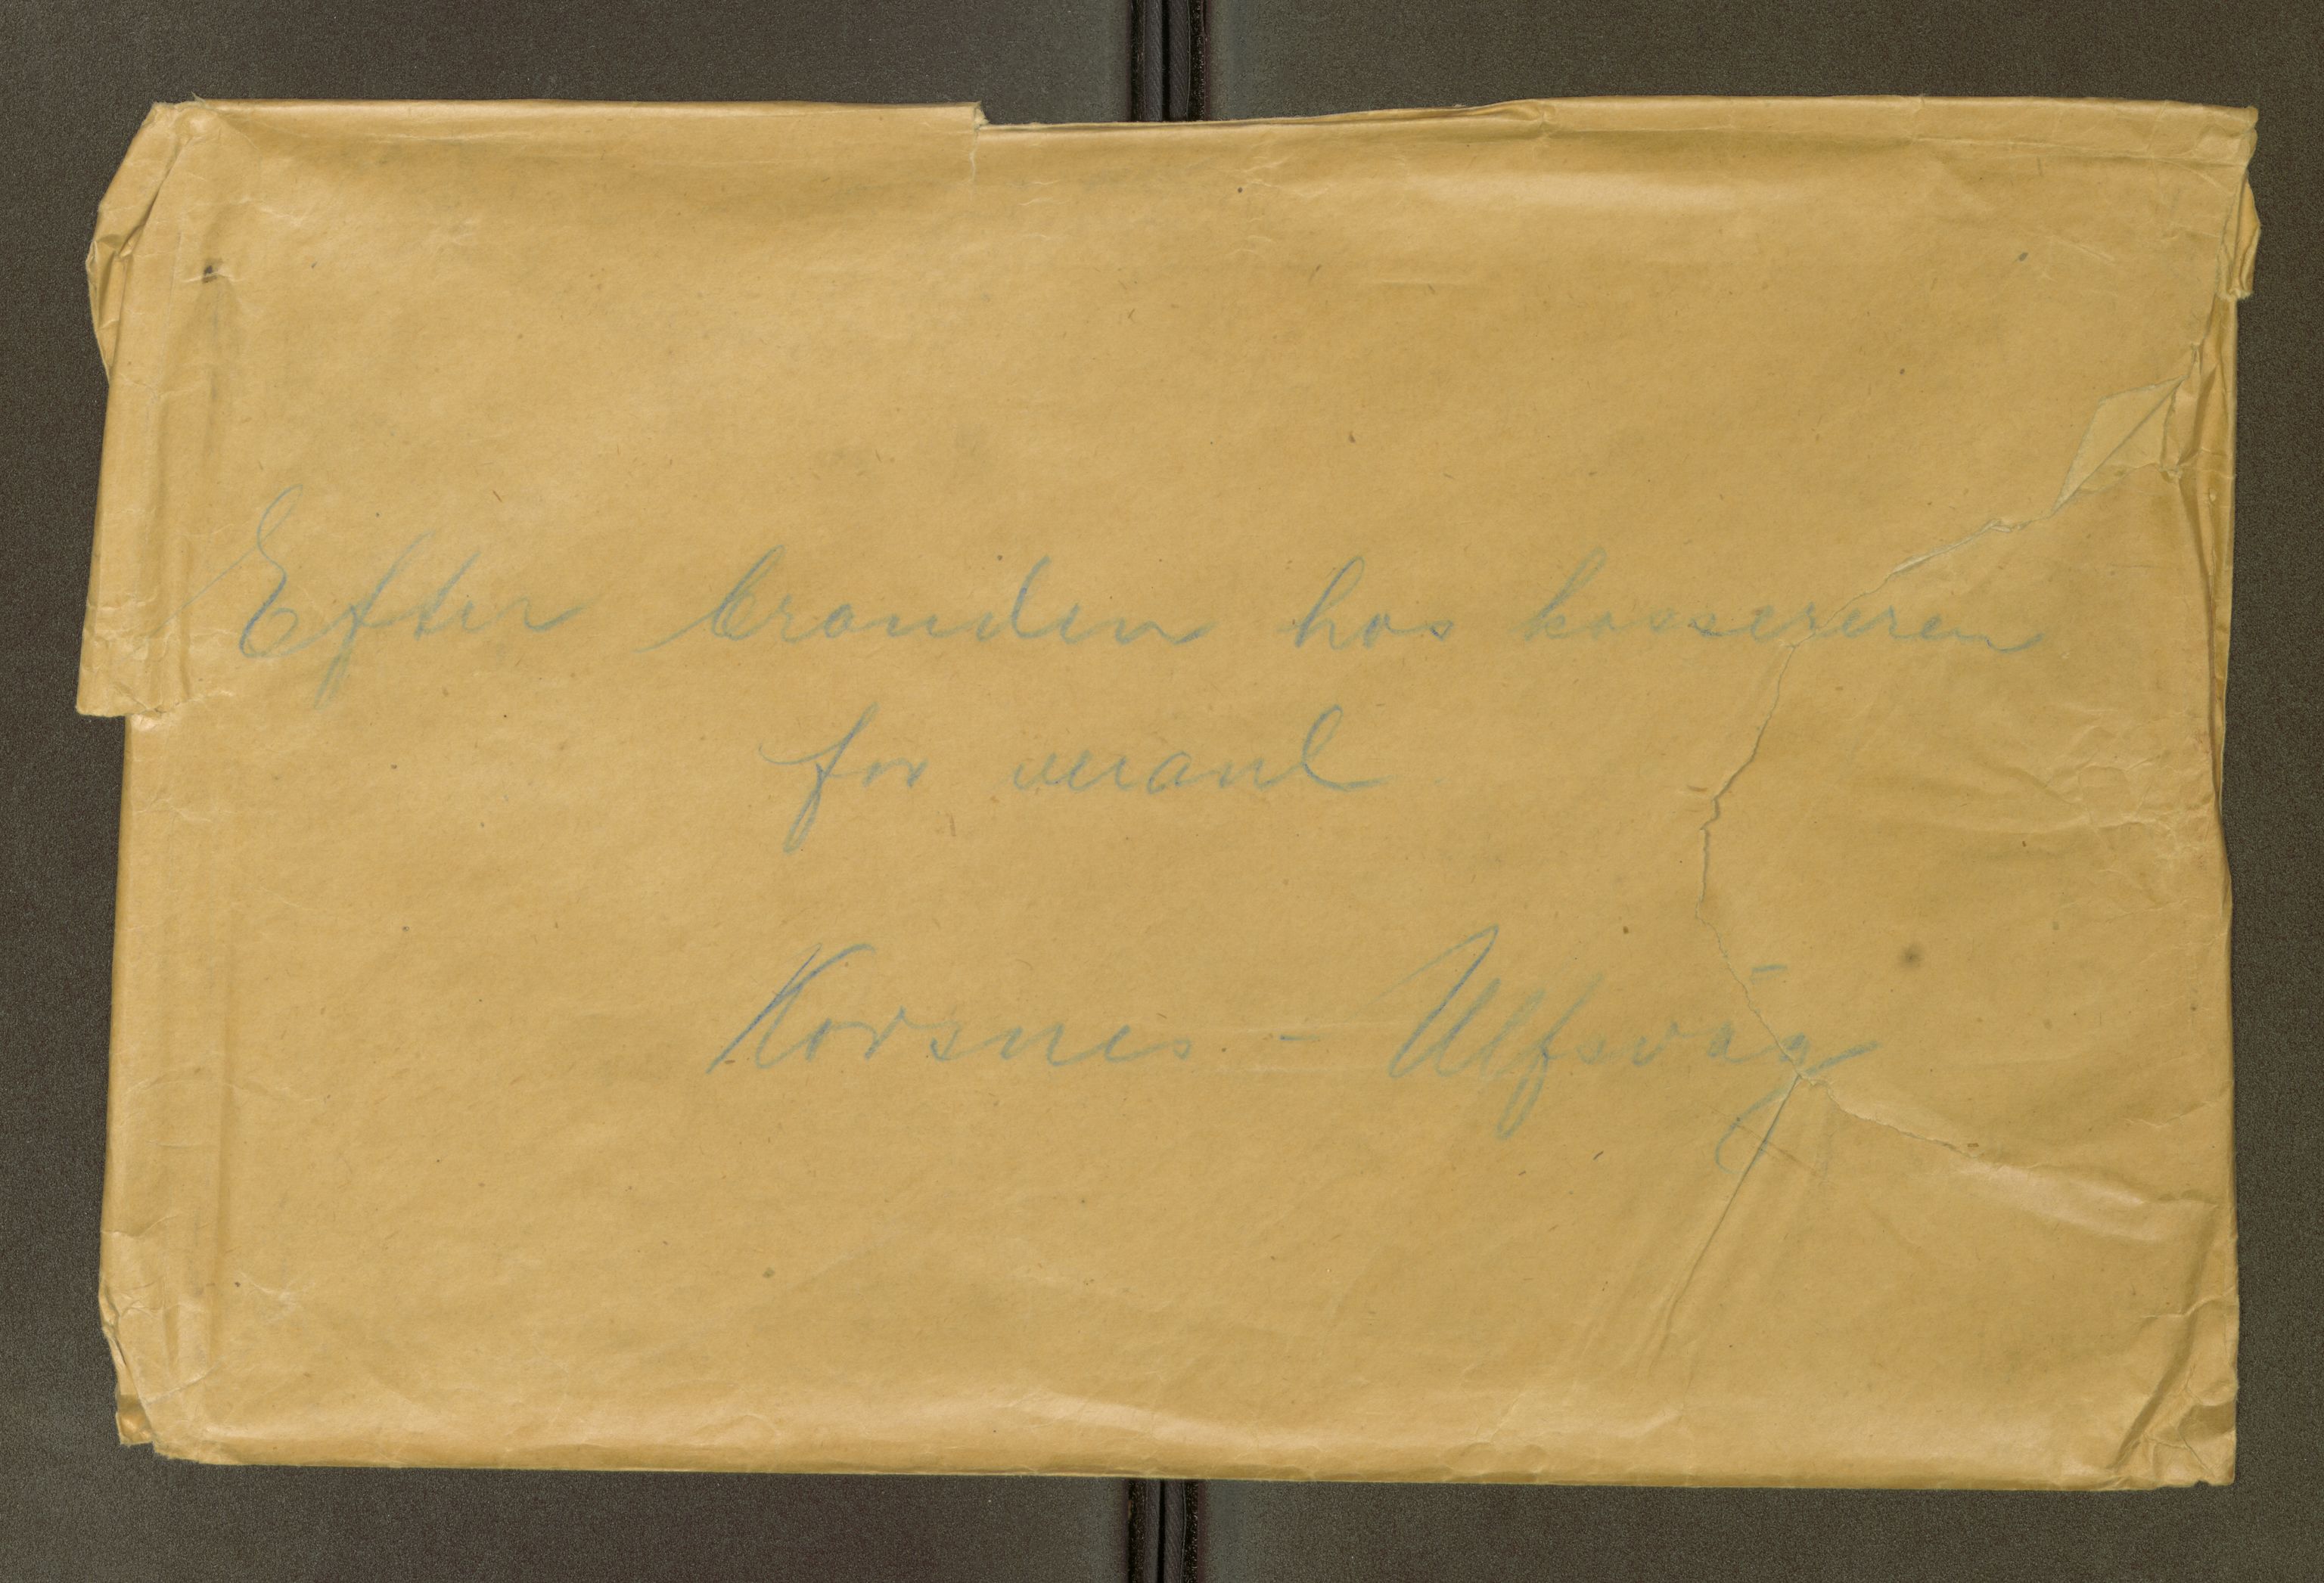 Efter branden hos kassereren
for veianl
Korsnes - Ulfsvåg